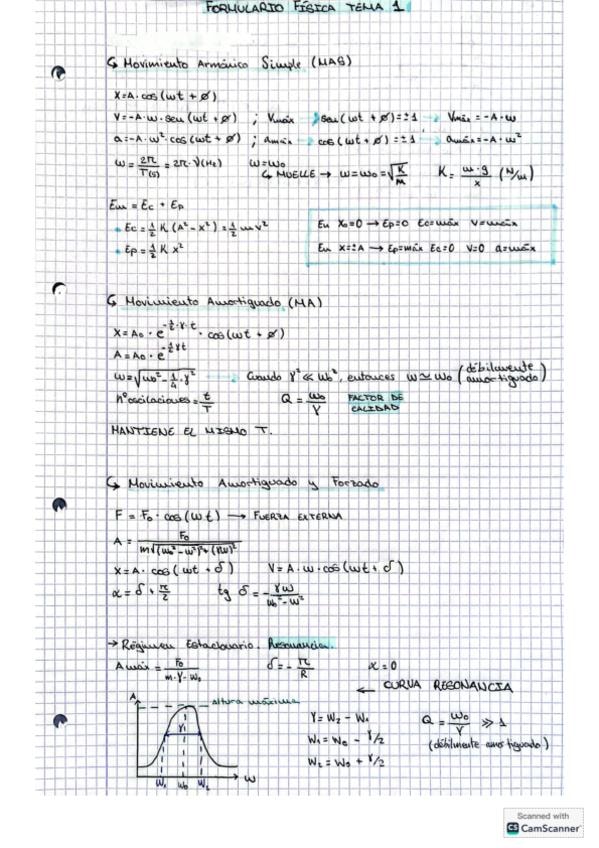 FORMULARIO FÍSICA TEMA 1
↳ Movimiento Armónico Simple (MAS)
X=A·cos(ωt+ø)
V=-A·ω·seu(ωt+ø) ; Vmáx → seu(ωt+ø)=±1 → Vmáx=-A·ω
a=-A·ω²·cos(ωt+ø) ; amáx → cos(ωt+ø)=±1 → amáx=-A·ω²
ω=2π/T(s)=2π·ν(Hz) ω=ω₀
↳ MUELLE → ω=ω₀=√(K/M) K=m·g/x (N/m)
Em = Ec + Ep
• Ec=½K(A²-x²)=½mv²
• Ep=½Kx²
En X₀=0 → Ep=0 Ec=máx V=máx
En X=±A → Ep=máx Ec=0 V=0 a=máx
↳ Movimiento Amortiguado (MA)
X=A₀·e^(-½·γ·t)·cos(ωt+ø)
A=A₀·e^(-½γt)
ω=√(ω₀²-¼·γ²) → Cuando γ²≪ω₀², entonces ω≃ω₀ (débilmente amortiguado)
nº oscilaciones=t/T Q=ω₀/γ FACTOR DE CALIDAD
MANTIENE EL MISMO T.
↳ Movimiento Amortiguado y Forzado
F=F₀·cos(ωt) → FUERZA EXTERNA
A=F₀/(m√((ω₀²-ω²)²+(γω)²))
X=A·cos(ωt+δ) V=A·ω·cos(ωt+δ)
α=δ+π/2 tg δ=-γω/(ω₀²-ω²)
→ Régimen Estacionario. Resonancia.
Amáx=F₀/(m·γ·ω₀) δ=-π/R α=0
← CURVA RESONANCIA
A
altura máxima
γ
W₁ W₀ W₂
W
γ=W₂-W₁
W₁=W₀-γ/2
W₂=W₀+γ/2
Q=ω₀/γ ≫1
(débilmente amortiguado)
Scanned with
CS CamScanner